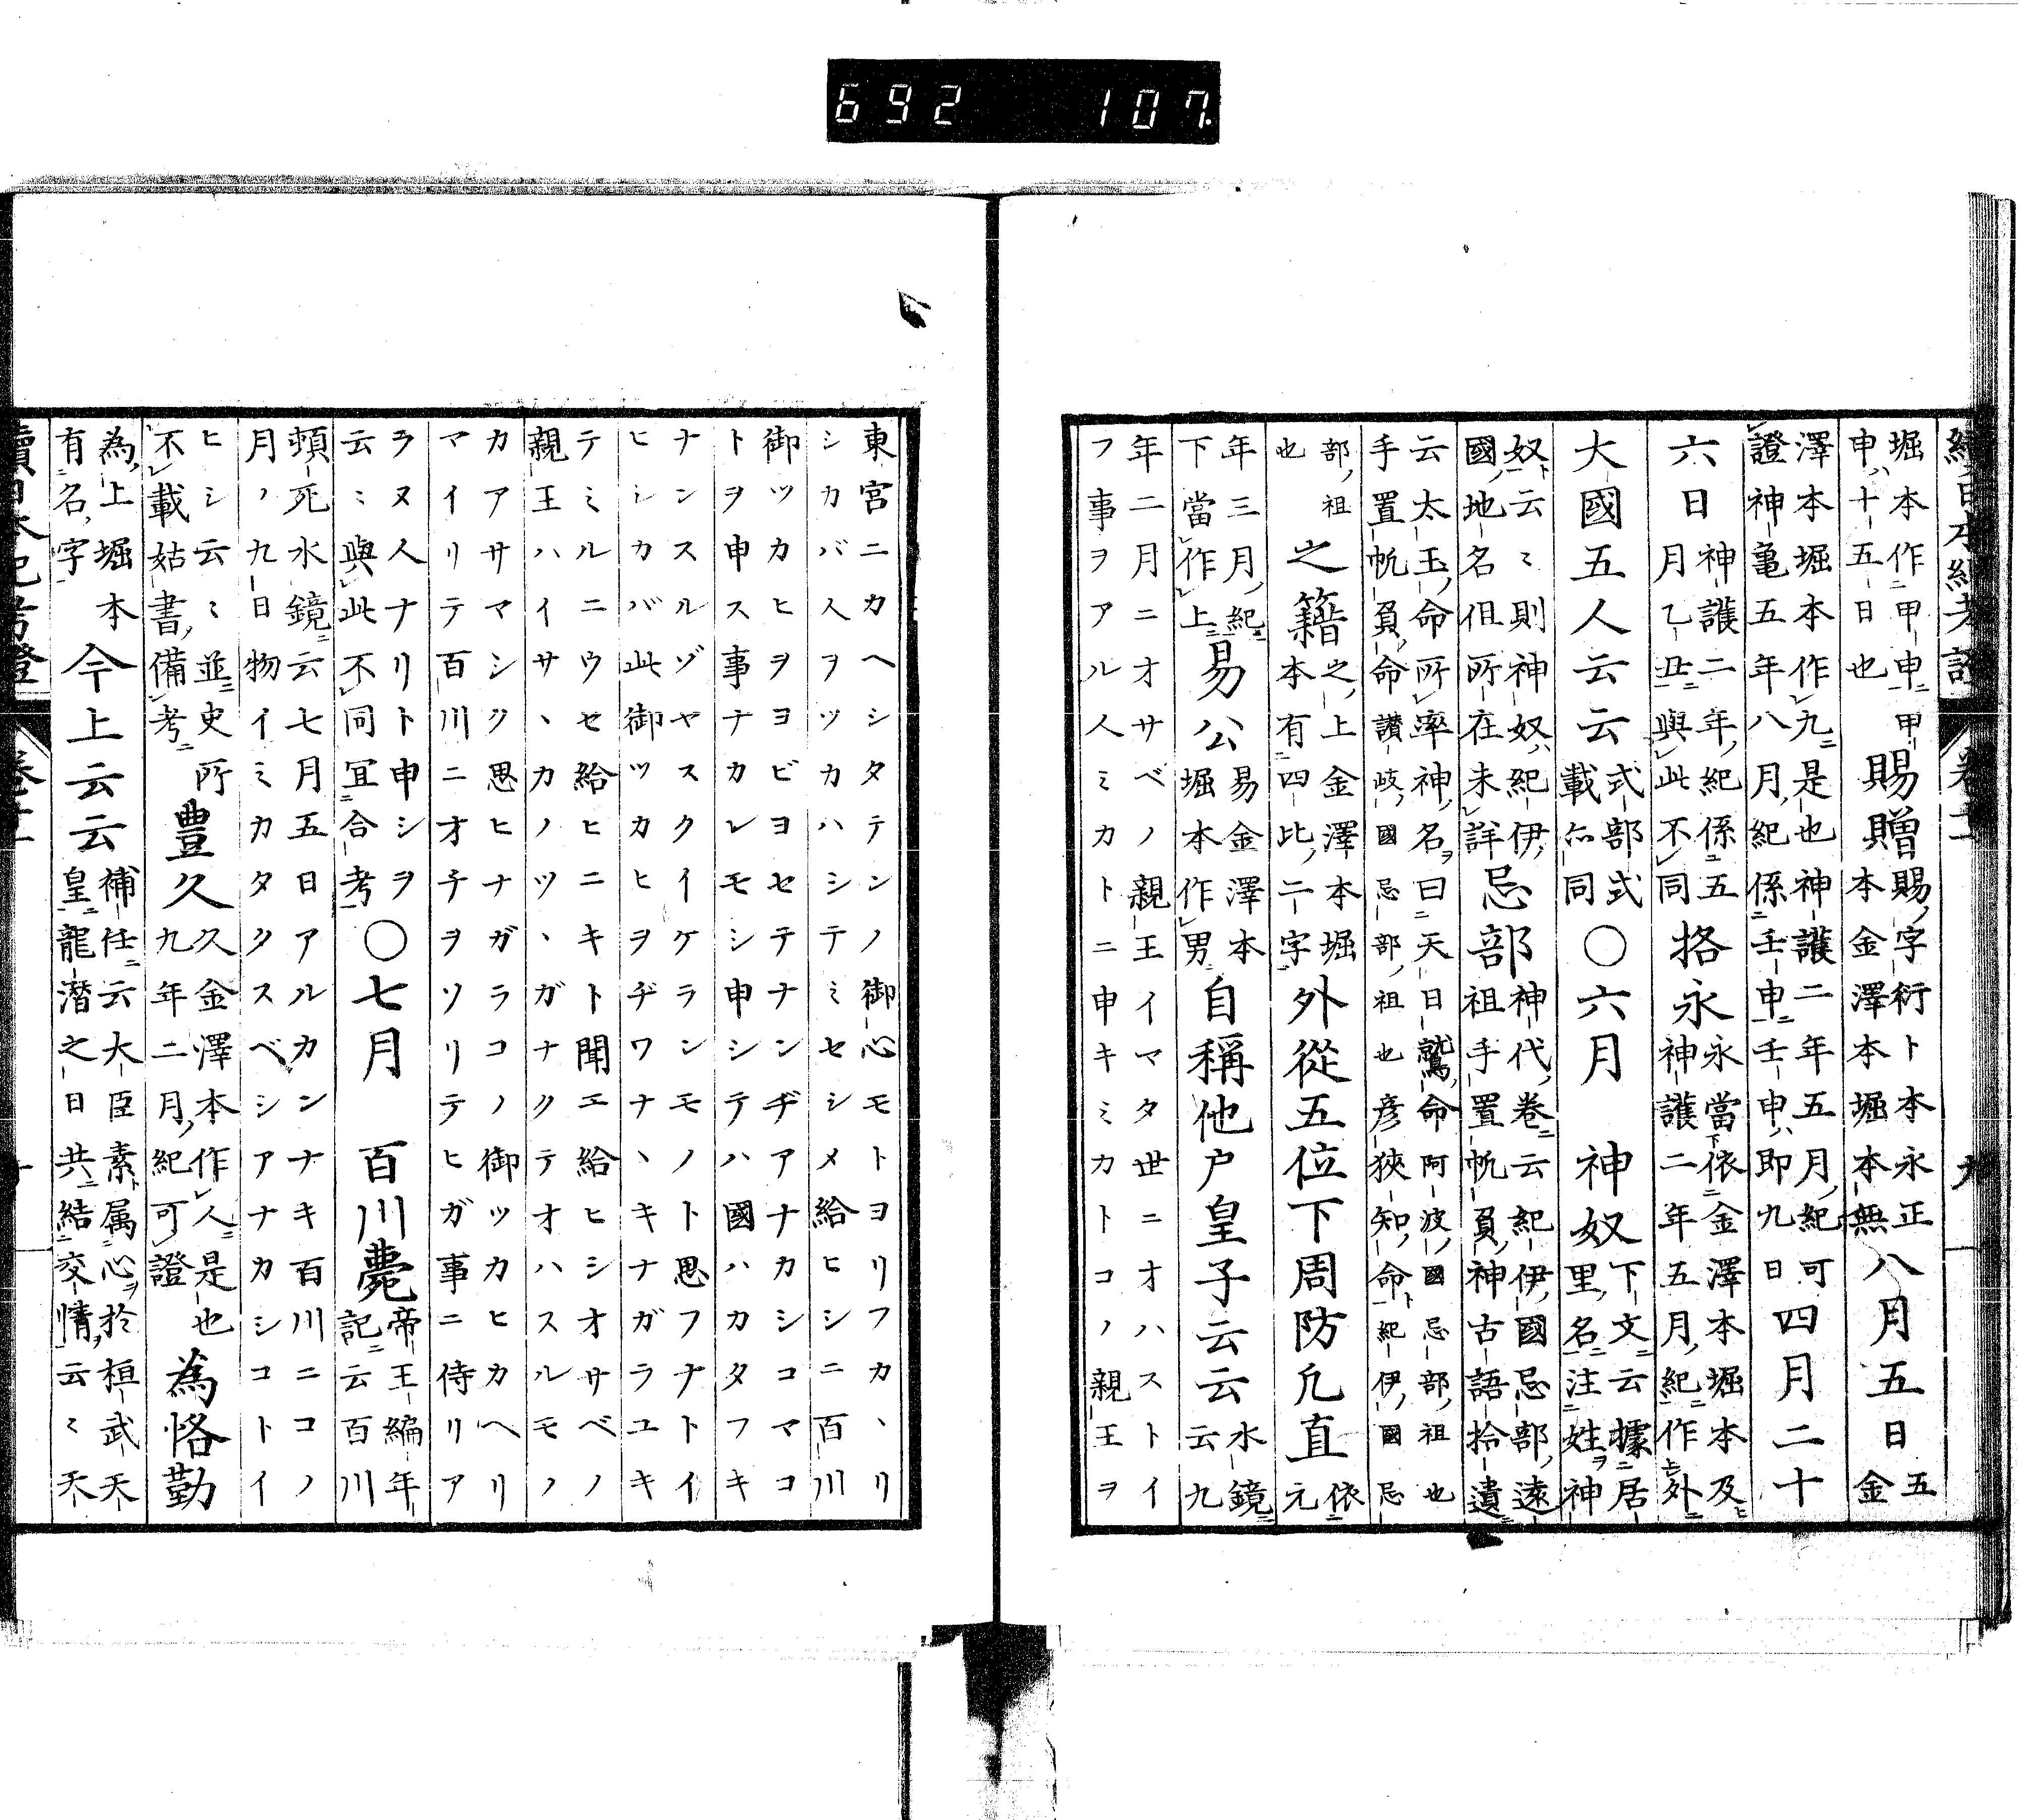 692 107
續日本紀考證 卷十二 九
堀本作甲申甲
申ハ十五日也
賜贈
賜字衍ト本永正
本金澤本堀本無
八月五日
五金
澤本堀本作九是也神護二年五月紀可
證神亀五年八月紀係壬申壬申ハ即九日
四月二十
六日
神護二年紀係五
月乙丑與此不同
挌永
永當依金澤本堀本及
神護二年五月紀作外
大國五人云云
式部式
載亦同
○六月 神奴
下文云據居
里名注姓神
奴云〻則神奴ハ紀伊
國地名但所在未詳
忌部
神代卷云紀伊國忌部遠
祖手置帆負神古語拾遺
云太玉命所率神名曰天日鷲命阿波國忌部祖也
手置帆負命讃岐國忌部祖也彦狹知命紀伊國忌
部祖
也
之籍
之上金澤本堀
本有四比二字
外從五位下周防凢直
依
元
年三月紀
下當作上
易公
易金澤本
堀本作男
自稱他户皇子云云
水鏡
云九
年二月ニオサベノ親王イマタ世ニオハストイ
フ事ヲアル人ミカトニ申キミカトコノ親王ヲ
東宮ニカヘシタテンノ御心モトヨリフカヽリ
シカバ人ヲツカハシテミセシメ給ヒシニ百川
御ツカヒヲヨビヨセテナンヂアナカシコマコ
トヲ申ス事ナカレモシ申シテハ國ハカタフキ
ナンスルゾヤスクイケランモノト思フナトイ
ヒシカバ此御ツカヒヲヂワナヽキナガラユキ
テミルニウセ給ヒニキト聞エ給ヒシオサベノ
親王ハイサヽカノツヽガナクテオハスルモノ
カアサマシク思ヒナガラコノ御ツカヒカヘリ
マイリテ百川ニオチヲソリテヒガ事ニ侍リア
ラヌ人ナリト申シヲ
云〻與此不同冝合考
○七月 百川薨
帝王編年
記云百川
頓死水鏡云七月五日アルカンナキ百川ニコノ
月ノ九日物イミカタクスベシアナカシコトイ
ヒシ云〻並史所
不載姑書備考
豊久
久金澤本作人是也
九年二月紀可證
為恪勤
為上堀本
有名字
今上云云
補任云大臣素属心於桓武天
皇龍潛之日共結交情云〻天
續日本紀考證 卷十二